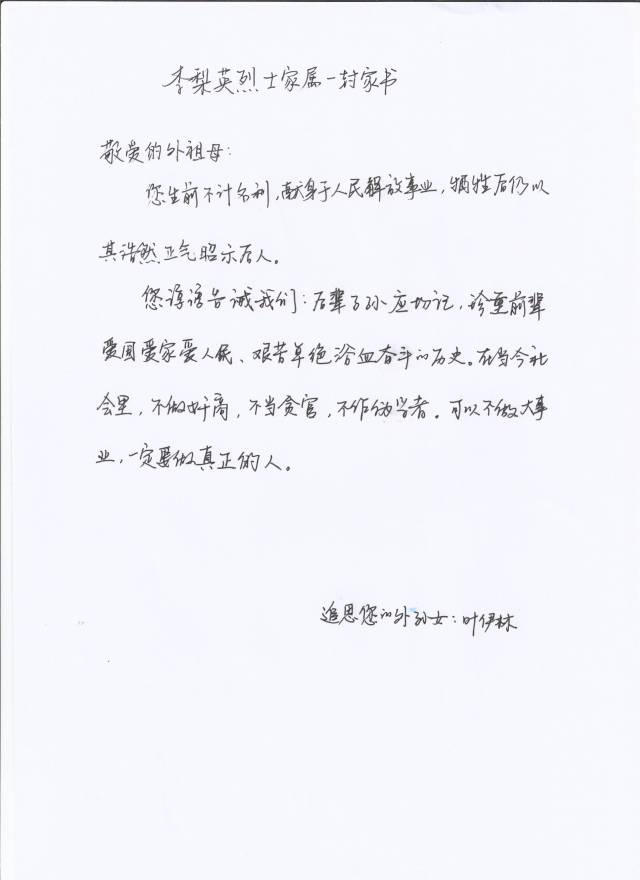 李梨英烈士家属一封家书
敬爱的外祖母：
您生前不计名利，献身于人民解放事业，牺牲后仍以
其浩然正气昭示后人。
您谆谆告诫我们：后辈子孙应切记，珍重前辈
爱国爱家爱人民、艰苦卓绝浴血奋斗的历史。在当今社
会里，不做奸商，不当贪官，不作伪学者。可以不做大事
业，一定要做真正的人。
追思您的外孙女：叶伊林